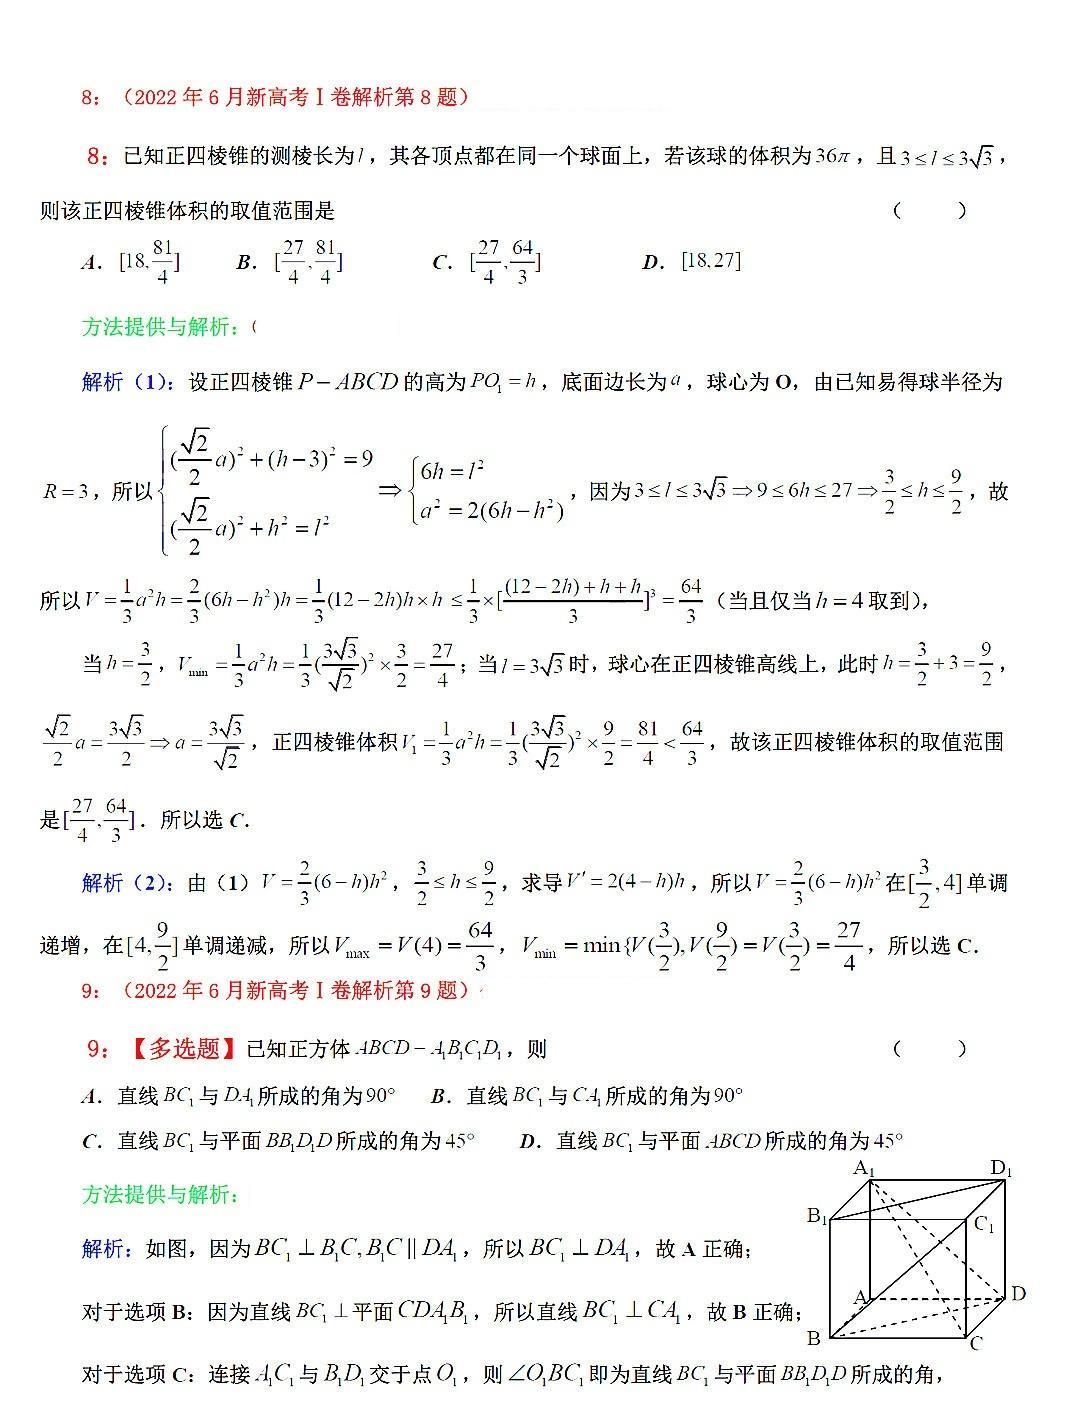 8：（2022 年 6 月新高考 I 卷解析第 8 题）
8：已知正四棱锥的测棱长为 l，其各顶点都在同一个球面上，若该球的体积为 36π，且 3≤l≤3√3，
则该正四棱锥体积的取值范围是 （ ）
A．[18, 81/4] B．[27/4, 81/4] C．[27/4, 64/3] D．[18,27]
方法提供与解析：（
解析（1）：设正四棱锥 P－ABCD 的高为 PO₁=h，底面边长为 a，球心为 O，由已知易得球半径为
R=3，所以 {(√2/2 a)²+(h-3)²=9, (√2/2 a)²+h²=l² ⇒ {6h=l², a²=2(6h-h²)，因为 3≤l≤3√3⇒9≤6h≤27⇒3/2≤h≤9/2，故
所以 V=1/3 a²h=2/3(6h-h²)h=1/3(12-2h)h×h ≤1/3×[((12-2h)+h+h)/3]³=64/3（当且仅当 h=4 取到），
当 h=3/2，Vmin=1/3 a²h=1/3(3√3/√2)²×3/2=27/4；当 l=3√3 时，球心在正四棱锥高线上，此时 h=3/2+3=9/2，
√2/2 a=3√3/2⇒a=3√3/√2，正四棱锥体积 V₁=1/3 a²h=1/3(3√3/√2)²×9/2=81/4<64/3，故该正四棱锥体积的取值范围
是[27/4, 64/3]．所以选 C．
解析（2）：由（1）V=2/3(6-h)h²，3/2≤h≤9/2，求导 V′=2(4-h)h，所以 V=2/3(6-h)h² 在[3/2,4]单调
递增，在[4,9/2]单调递减，所以 Vmax=V(4)=64/3，Vmin=min{V(3/2),V(9/2)=V(3/2)=27/4，所以选 C．
9：（2022 年 6 月新高考 I 卷解析第 9 题）
9：【多选题】已知正方体 ABCD－A₁B₁C₁D₁，则 （ ）
A．直线 BC₁ 与 DA₁ 所成的角为 90° B．直线 BC₁ 与 CA₁ 所成的角为 90°
C．直线 BC₁ 与平面 BB₁D₁D 所成的角为 45° D．直线 BC₁ 与平面 ABCD 所成的角为 45°
方法提供与解析：
解析：如图，因为 BC₁⊥B₁C, B₁C∥DA₁，所以 BC₁⊥DA₁，故 A 正确；
对于选项 B：因为直线 BC₁⊥平面 CDA₁B₁，所以直线 BC₁⊥CA₁，故 B 正确；
对于选项 C：连接 A₁C₁ 与 B₁D₁ 交于点 O₁，则 ∠O₁BC₁ 即为直线 BC₁ 与平面 BB₁D₁D 所成的角，
A₁ D₁
B₁ C₁
A D
B C